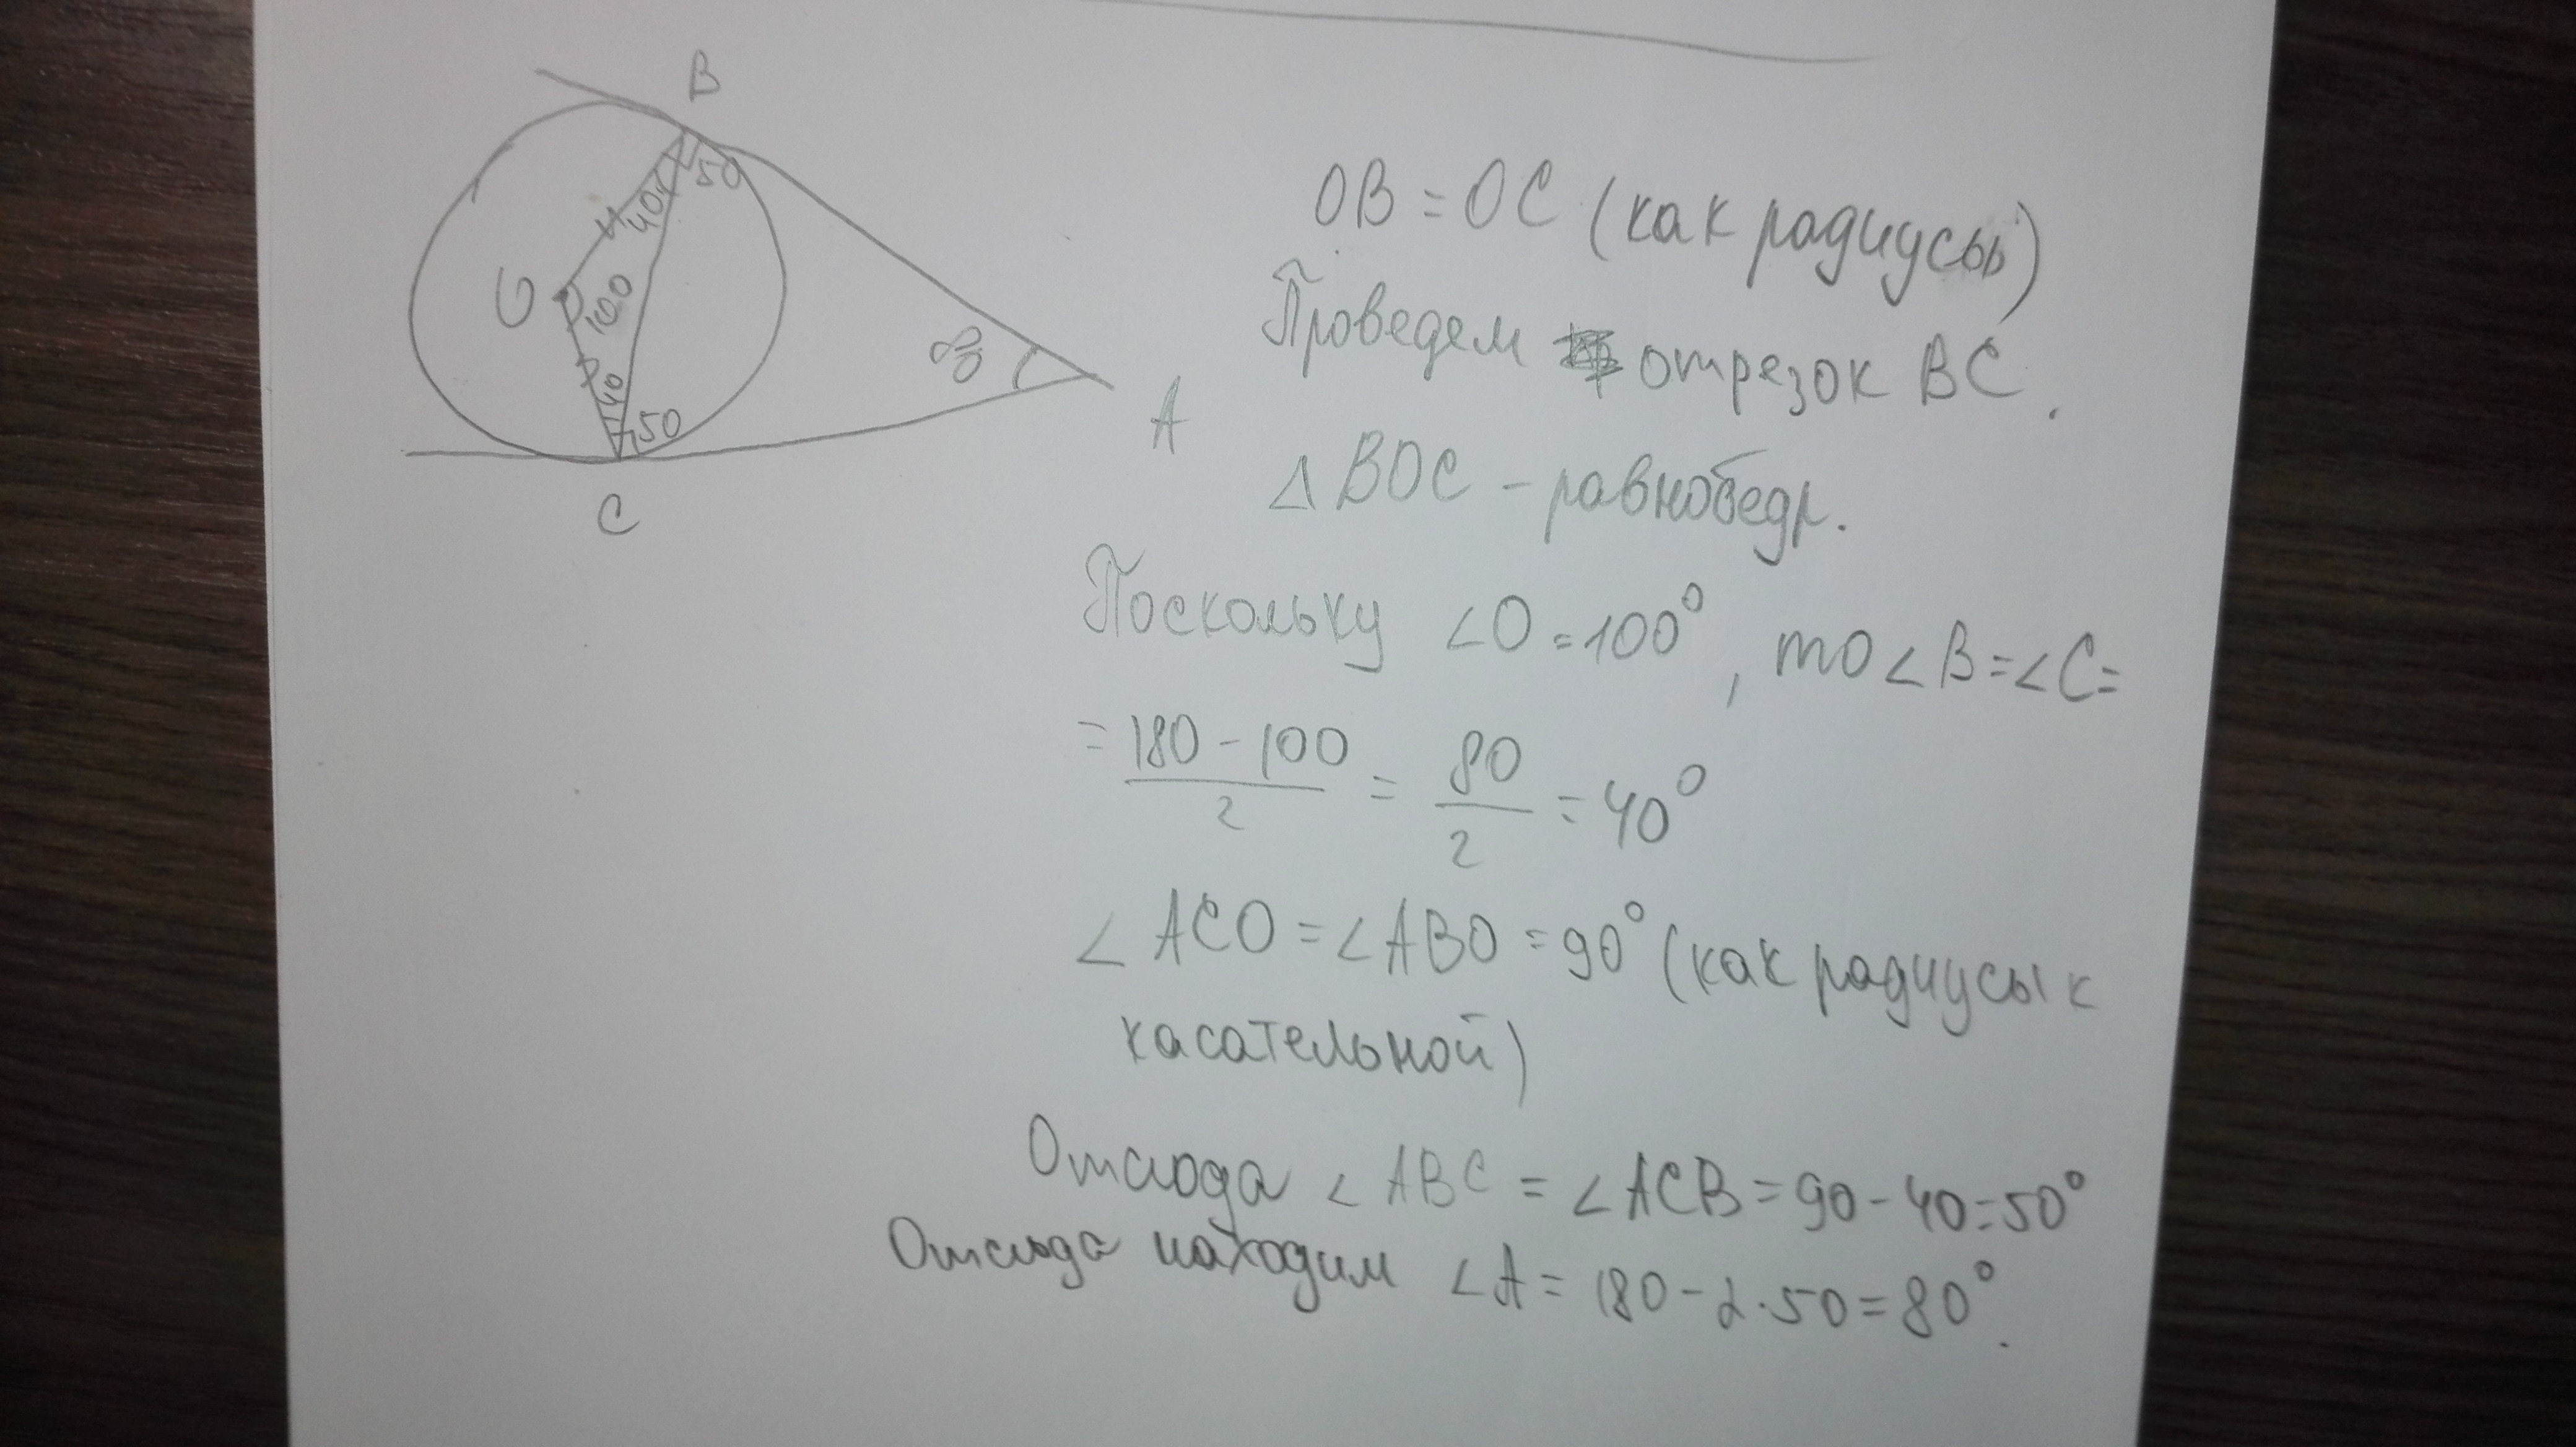 B
50
40
O
100
40
50
80
A
C
OB = OC (как радиусы)
Проведем отрезок BC.
△ BOC - равнобедр.
Поскольку ∠O = 100°, то ∠B = ∠C =
= (180 - 100)/2 = 80/2 = 40°
∠ACO = ∠ABO = 90° (как радиусы к
касательной)
Отсюда ∠ABC = ∠ACB = 90 - 40 = 50°
Отсюда находим ∠A = 180 - 2·50 = 80°.